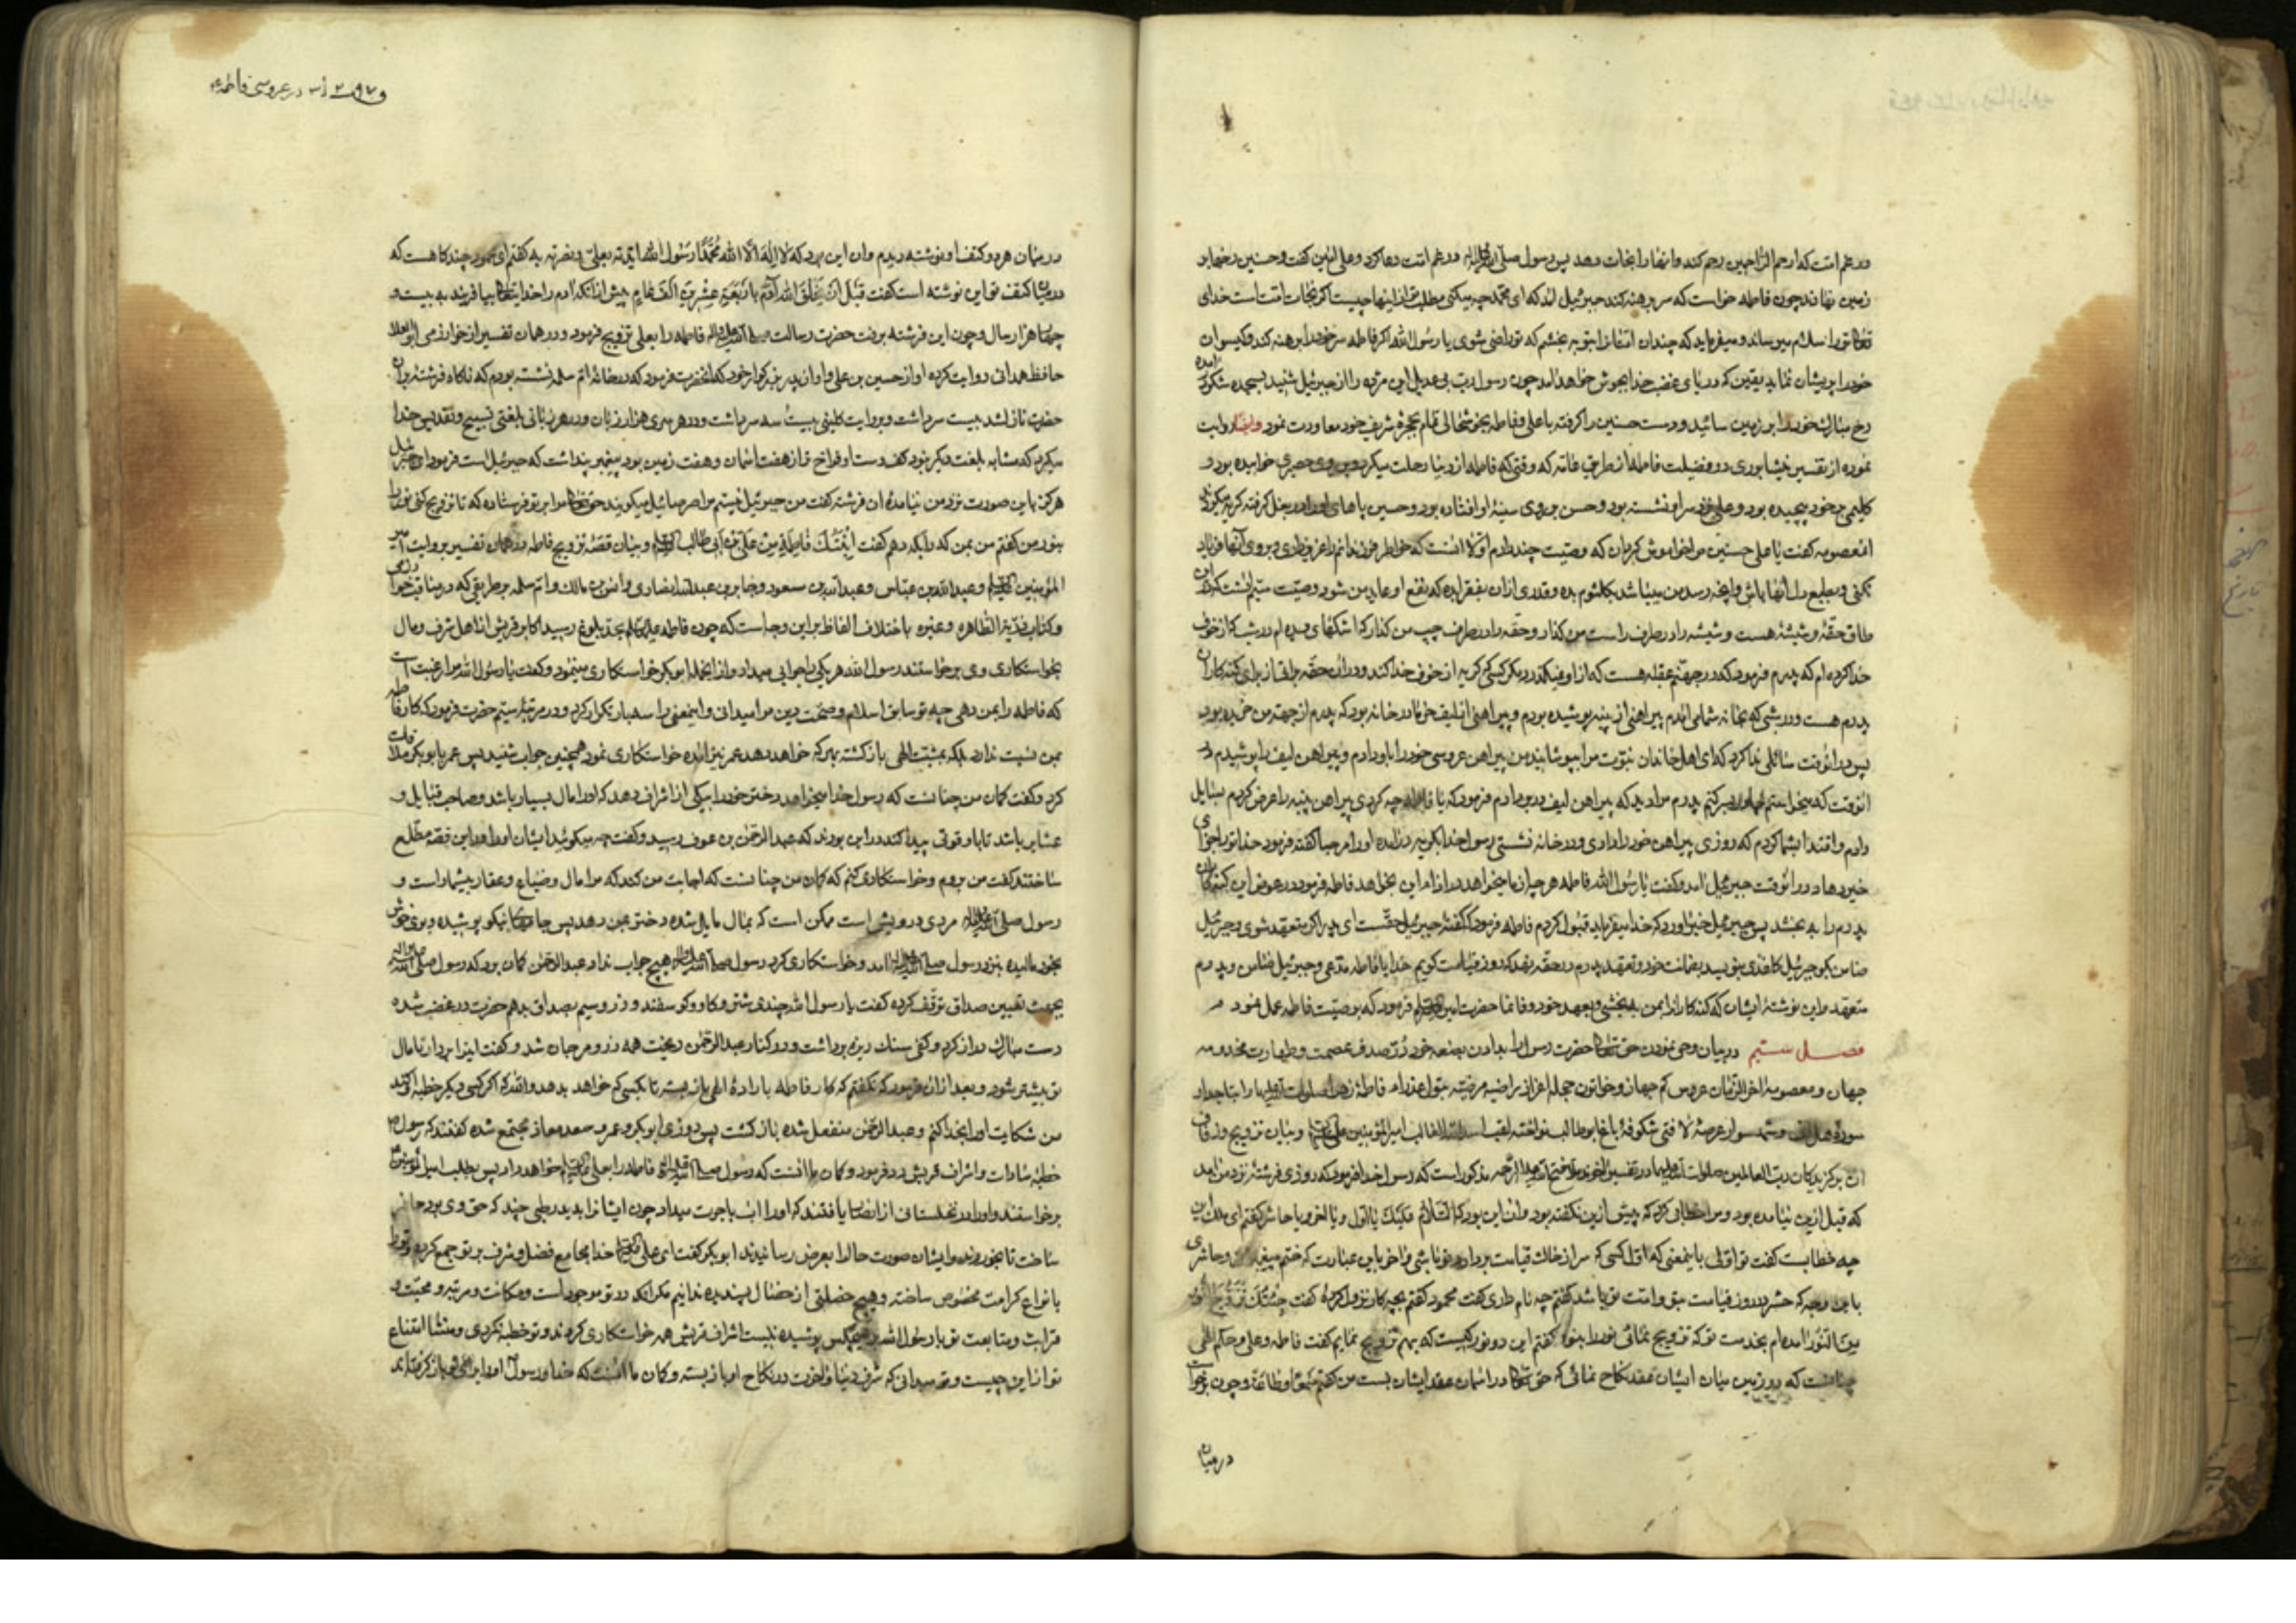 در غم امت که ارحم الراحمین رحم کند و ایشانرا نجات دهد پس رسول صلی الله علیه و آله در غم امت دعا کرد و علی آمین گفت و حسنین رخها بر
زمین نهادند چون فاطمه خواست که سر برهنه کند جبرئیل آمد که ای محمد چه میکنی مطلب تو از اینها چیست اگر نجات امت است خدای
تعالی تو را سلام میرساند و میفرماید که چندان امتانرا بتو به بخشم که تو راضی شوی یا رسول الله اگر فاطمه سر خود را برهنه کند و گیسوان
خود را پریشان نماید یقین که دریای غضب خدا بجوش خواهد آمد چون رسول رب بی عدیل این مژده را از جبرئیل شنید بسجده شکر در آمده
رخ مبارک خود را بر زمین سائید و دست حسنین را گرفته با علی و فاطمه بخوشحالی تمام بحجره شریف خود معاودت نمود وایضا روایت
نموده از تفسیر نیشابوری در فضیلت فاطمه از طریق عامه که وقتی که فاطمه از دنیا رحلت میکرد بر روی حصیری خوابیده بود و
کلیمی بر خود پیچیده بود و علی نزد سر او نشسته بود و حسن بر روی سینهٔ او افتاده بود و حسین پاهای او را در بغل گرفته گریه میکردند
آنمعصومه گفت یا علی حسنین مرا فراموش مکن که وصیت چند دارم اولا آنست که خاطر فرزندانم را عزیز داری و بروی آنها فریاد
نکنی و مطیع دل آنها باش و آنچه رسد من بینا شد بکلثوم بده و قدری از آن بفقرا بده که نفع او عاید من شود وصیت سیم آنست که در این
طاق حقهٔ و شیشهٔ هست و شیشه را در طرف راست من گذار و حقه را در طرف چپ من گذار که اشکهای دیده ام در شیشه که از خوف
خدا کرده ام که پدرم فرمود که در جهنم عقبه هست که از او نمیگذرد مگر کسی که گریه از خوف خدا کند و در آن حقه براتی از برای گنه کاران
پدرم هست و در شبی که بخانه شما می آمدم پیراهنی از پنبه پوشیده بودم و پیراهنی از لیف خرما در خانه بود که پدرم از جهت من خریده بود
پس در آنوقت سائلی ندا کرد که ای اهل خاندان نبوت مرا بپوشانید من پیراهن عروسی خود را باو دادم و پیراهن لیف را پوشیدم در
آنوقت که میخواستم پدرم مرا دید که پیراهن لیف در بر دارم فرمود که یا فاطمه چه کردی پیراهن پنبه را عرض کردم بسایل
دادم و اقتدا بشما کردم که روزی پیراهن خود را دادی و در خانه نشستی رسول خدا بگریه در آمده او را مرحبا گفته فرمود خدا تو را جزای
خیر دهاد در آنوقت جبرئیل آمد و گفت یا رسول الله فاطمه هر چه از ما میخواهد در ازاء این بخواهد فاطمه فرمود در عوض این گنه کاران
پدرم را به بخشد پس جبرئیل خبر آورد که خدا میفرماید قبول کردم فاطمه فرمود که گفتهٔ جبرئیل حقست ای پدر اگر متعهد شوی و جبرئیل
ضامن بگو جبرئیل کاغذی بنویسد بضمانت خود و تعهد پدرم در حقه نهد که روز قیامت گویم خدایا فاطمه مدعی و جبرئیل ضامن و پدرم
متعهد و این نوشتهٔ ایشان که گنه کارانرا بمن به بخشی و بعهد خود وفا نما حضرت امیر علیه السلام فرمود که بوصیت فاطمه عمل نمود
فصل ستیم در بیان وحی نمودن حق تعالی حضرت رسول را بدادن بضعه خود درّ صدف عصمت و طهارت مخدومه
جهان و معصومهٔ آخر الزمان عروس کم جهاز و خواتون حجله اعزاز راضیه مرضیه بتول عذراء فاطمهٔ زهرا صلوات الله علیها را با تاجدار
سورهٔ هل اتی و شهسوار عرصهٔ لا فتی شکوفهٔ باغ ابوطالب نواخته لقب اسد الله الغالب امیر المؤمنین علی علیه السلام و بیان تزویج و زفاف
آن برگزیدگان رب العالمین صلوات الله علیهما در تفسیر آخوند ملا فتح الله علیه الرحمه مذکور است که رسول خدا فرمود که روزی فرشتهٔ نزد من آمد
که قبل ازین نیامده بود و مرا خطابی کرد که پیش ازین نکفته بود و آن این بود که السلام علیک یا اول و یا آخر و یا حاشر گفتم ای ملک این
چه خطابست گفت تو اولی باینمعنی که اول کسی که سر از خاک قیامت بردارد تو باشی و آخر باین عبارت که ختم پیغمبران و حاشری
باین وجه که حشر در روز قیامت بتو و امت تو باشد گفتم چه نام داری گفت محمود گفتم بچه کار نزول کردهٔ گفت جئتک تزویج النور
من النور آمده ام بخدمت تو که تزویج نمائی نور را بنور گفتم این دو نور کیست که بهم تزویج نمایم گفت فاطمه و علی و حکم الهی
چنانست که در زمین میان ایشان عقد نکاح نمائی که حق تعالی در آسمان عقد ایشان بست من گفتم سمعا و طاعة و چون برخواست
درمیان
در عروسی فاطمه
در میان هر دو کتف او نوشته دیدم و آن این بود که لا اله الا الله محمدا رسول الله ایدته بعلی و نصرته به گفتم ای محمود چندگاهست که
در میان کتف تو این نوشته است گفت قبل ان یخلق الله آدم باربعة عشرین الف عام پیش از آنکه آدم را خدا بتعالی بیافریند به بیست و
چهار هزار سال و چون این فرشته برفت حضرت رسالت صلی الله علیه و آله فاطمه را بعلی تزویج فرمود و در همان تفسیر از خوارزمی ابو العلا
حافظ همدانی روایت کرده او از حسین بن علی و او از پدر بزرگوار خود که آنحضرت فرمود که در خانهٔ ام سلمه نشسته بودم که ناگاه فرشتهٔ بر آن
حضرت نازل شد بیست سر داشت و بروایت کلینی بیست و سه سر داشت و در هر سری هزار زبان و در هر زبانی بلغتی تسبیح و تقدیس خدا
میکرد که مشابه بلغت دیگر نبود کف دست او فراخ تر از هفت آسمان و هفت زمین بود پیغمبر پنداشت که جبرئیل است فرمود ای جبرئیل
هرگز باین صورت نزد من نیامدهٔ آن فرشته گفت من جبرئیل نیستم مرا صرصائیل میگویند حق تعالی مرا بر تو فرستاده که تا تزویج کنی نور را
بنور من گفتم من بمن که را بکه دهم گفت ابنتک فاطمة من علی بن ابی طالب علیه السلام و بیان قصهٔ تزویج فاطمه در همان تفسیر بروایت امیر
المؤمنین علیه السلام و عبد الله بن عباس و عبد الله بن مسعود و جابر بن عبد الله انصاری و انس بن مالک و ام سلمه بر طریقی که در مناقب خوارزمی
و کتاب ذریة الطاهره و غیره باختلاف الفاظ بر این وجه است که چون فاطمه علیها السلام بحد بلوغ رسید اکابر قریش از اهل شرف و مال
بخواستکاری وی برخواستند رسول الله هر یکی را جوابی میداد و از آنجمله ابو بکر خواستکاری مینمود و گفت یا رسول الله مرا رغبت است
که فاطمه را بمن دهی چه تو سابق اسلام و صحت دین مرا میدانی و اینمعنی را سه بار تکرار کرد و در مرتبهٔ سیم حضرت فرمود که کار فاطمه
بمن نسبت ندارد بلکه بمشیت الهی بازگشته بهر که خواهد دهد عمر نیز آمده خواستکاری نمود همچنین جواب شنید پس عمر با بو بکر ملاقات
کرد و گفت گمان من چنانست که رسول خدا میخواهد دختر خود را بیکی از اشراف دهد که او را مال بسیار باشد و صاحب قبایل و
عشایر باشد تا با و قوتی پیدا کند در این بودند که عبد الرحمن بن عوف رسید و گفت چه میگوئید ایشان او را از این قصه مطلع
ساختند گفت من بروم و خواستکاری کنم که گمان من چنانست که اجابت من کند که مرا مال و ضیاع و عقار بیشمار است و
رسول صلی الله علیه و آله مردی درویش است ممکن است که بمال مایل شده دختر بمن دهد پس جامهای نیکو پوشیده و بوی خوش
بخود مالیده نزد رسول صلی الله علیه و آله آمد و خواستکاری کرد رسول صلی الله علیه و آله هیچ جواب نداد عبد الرحمن گمان برد که رسول صلی الله علیه و آله
بجهت تعیین صداق توقف کرده گفت یا رسول الله چندی شتر و گاو و گوسفند و زر و سیم بصداق بدهم حضرت در غضب شده
دست مبارک دراز کرد و کفی سنک ریزه برداشت و در کنار عبد الرحمن ریخت همه در و مرجان شد و گفت اینرا بردار تا مال
تو بیشتر شود و بعد از آن فرمود که نگفتم که کار فاطمه با رادهٔ الهی باز بسته تا بکسی که خواهد بدهد والله که اگر کسی دیگر خطبه او کند
من شکایت او را بخدا کنم و عبد الرحمن منفعل شده بازگشت پس روزی ابو بکر و عمر و سعد معاذ مجتمع شده گفتند که رسول ص
خطبهٔ سادات و اشراف قریش رد فرمود و گمان ما آنست که رسول صلی الله علیه و آله فاطمه را بعلی علیه السلام خواهد داد پس بطلب امیر المؤمنین
برخواستند و او را در نخلستانی از انصار یافتند که او را آب باجرت میداد چون ایشانرا بدید رطبی چند که حق وی بود حاضر
ساخت تا بخورند و ایشان صورت حال را بعرض رسانیدند ابو بکر گفت ای علی علیه السلام خدا مجامع فضل و شرف بر تو جمع کرده و تو را
بانواع کرامت مخصوص ساخته و هیچ خصلتی از خصال پسندیده ندانیم مگر آنکه در تو موجود است و مکانت و مرتبه و محبت و
قرابت و متابعت تو با رسول الله بر هیچکس پوشیده نیست اشراف قریش همه خواستکاری کردند و تو خطبه نکردی و منشأ امتناع
تو از این چیست و تو میدانی که شرف دنیا و آخرت در نکاح او باز بسته و گمان ما آنست که خدا و رسول ص او را برای تو باز گرفته اند